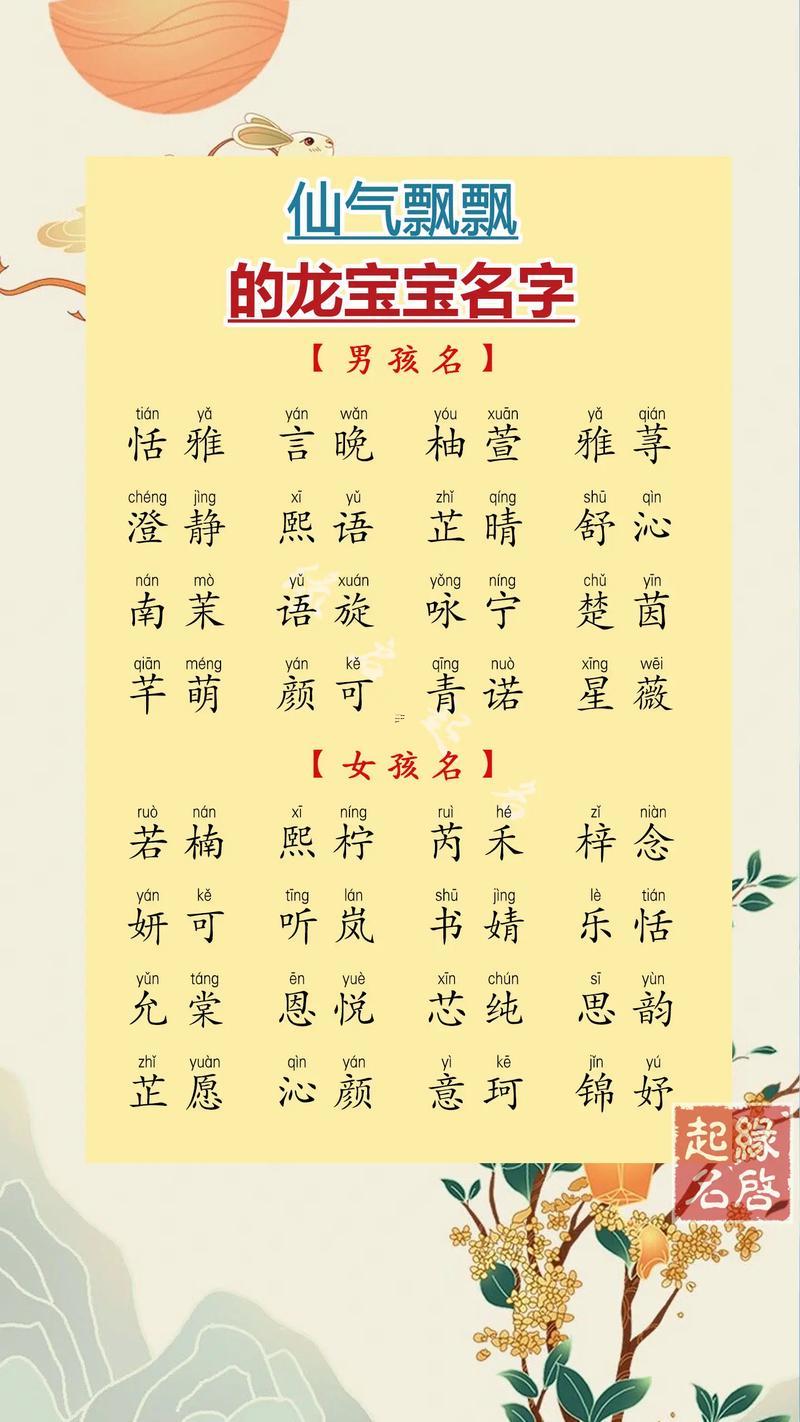 仙气飘飘
的龙宝宝名字
【男孩名】
tián yǎ yán wǎn yóu xuān yǎ qián
恬雅 言晚 柚萱 雅荨
chéng jìng xī yǔ zhǐ qíng shū qìn
澄静 熙语 芷晴 舒沁
nán mò yǔ xuán yǒng níng chǔ yīn
南茉 语旋 咏宁 楚茵
qiān méng yán kě qīng nuò xīng wēi
芊萌 颜可 青诺 星薇
【女孩名】
ruò nán xī níng ruì hé zǐ niàn
若楠 熙柠 芮禾 梓念
yán kě tīng lán shū jìng lè tián
妍可 听岚 书婧 乐恬
yǔn táng ēn yuè xīn chún sī yùn
允棠 恩悦 芯纯 思韵
zhǐ yuàn qìn yán yì kē jǐn yú
芷愿 沁颜 意珂 锦妤
缘啓
起名